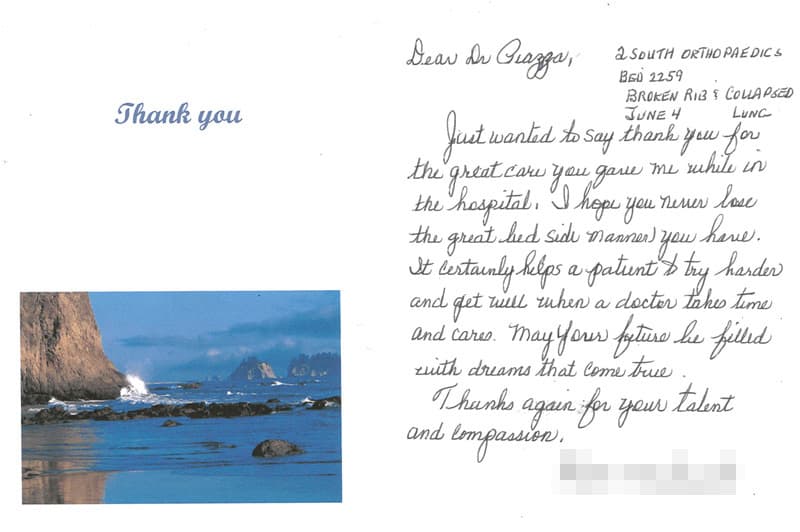 Thank you
Dear Dr Piazza,
2 SOUTH ORTHOPAEDICS
BED 2259
BROKEN RIB & COLLAPSED
JUNE 4 LUNG
Just wanted to say thank you for
the great care you gave me while in
the hospital. I hope you never lose
the great bed side manner you have.
It certainly helps a patient to try harder
and get well when a doctor takes time
and cares. May your future be filled
with dreams that come true.
Thanks again for your talent
and compassion.